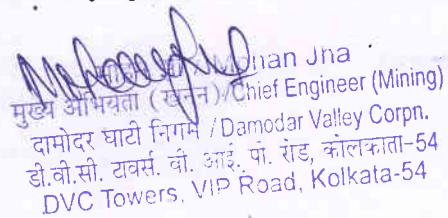 Mohan Jha
मुख्य अभियंता (खनन)/Chief Engineer (Mining)
दामोदर घाटी निगम / Damodar Valley Corpn.
डी.वी.सी. टावर्स. वी. आई. पी. रोड, कोलकाता-54
DVC Towers, VIP Road, Kolkata-54